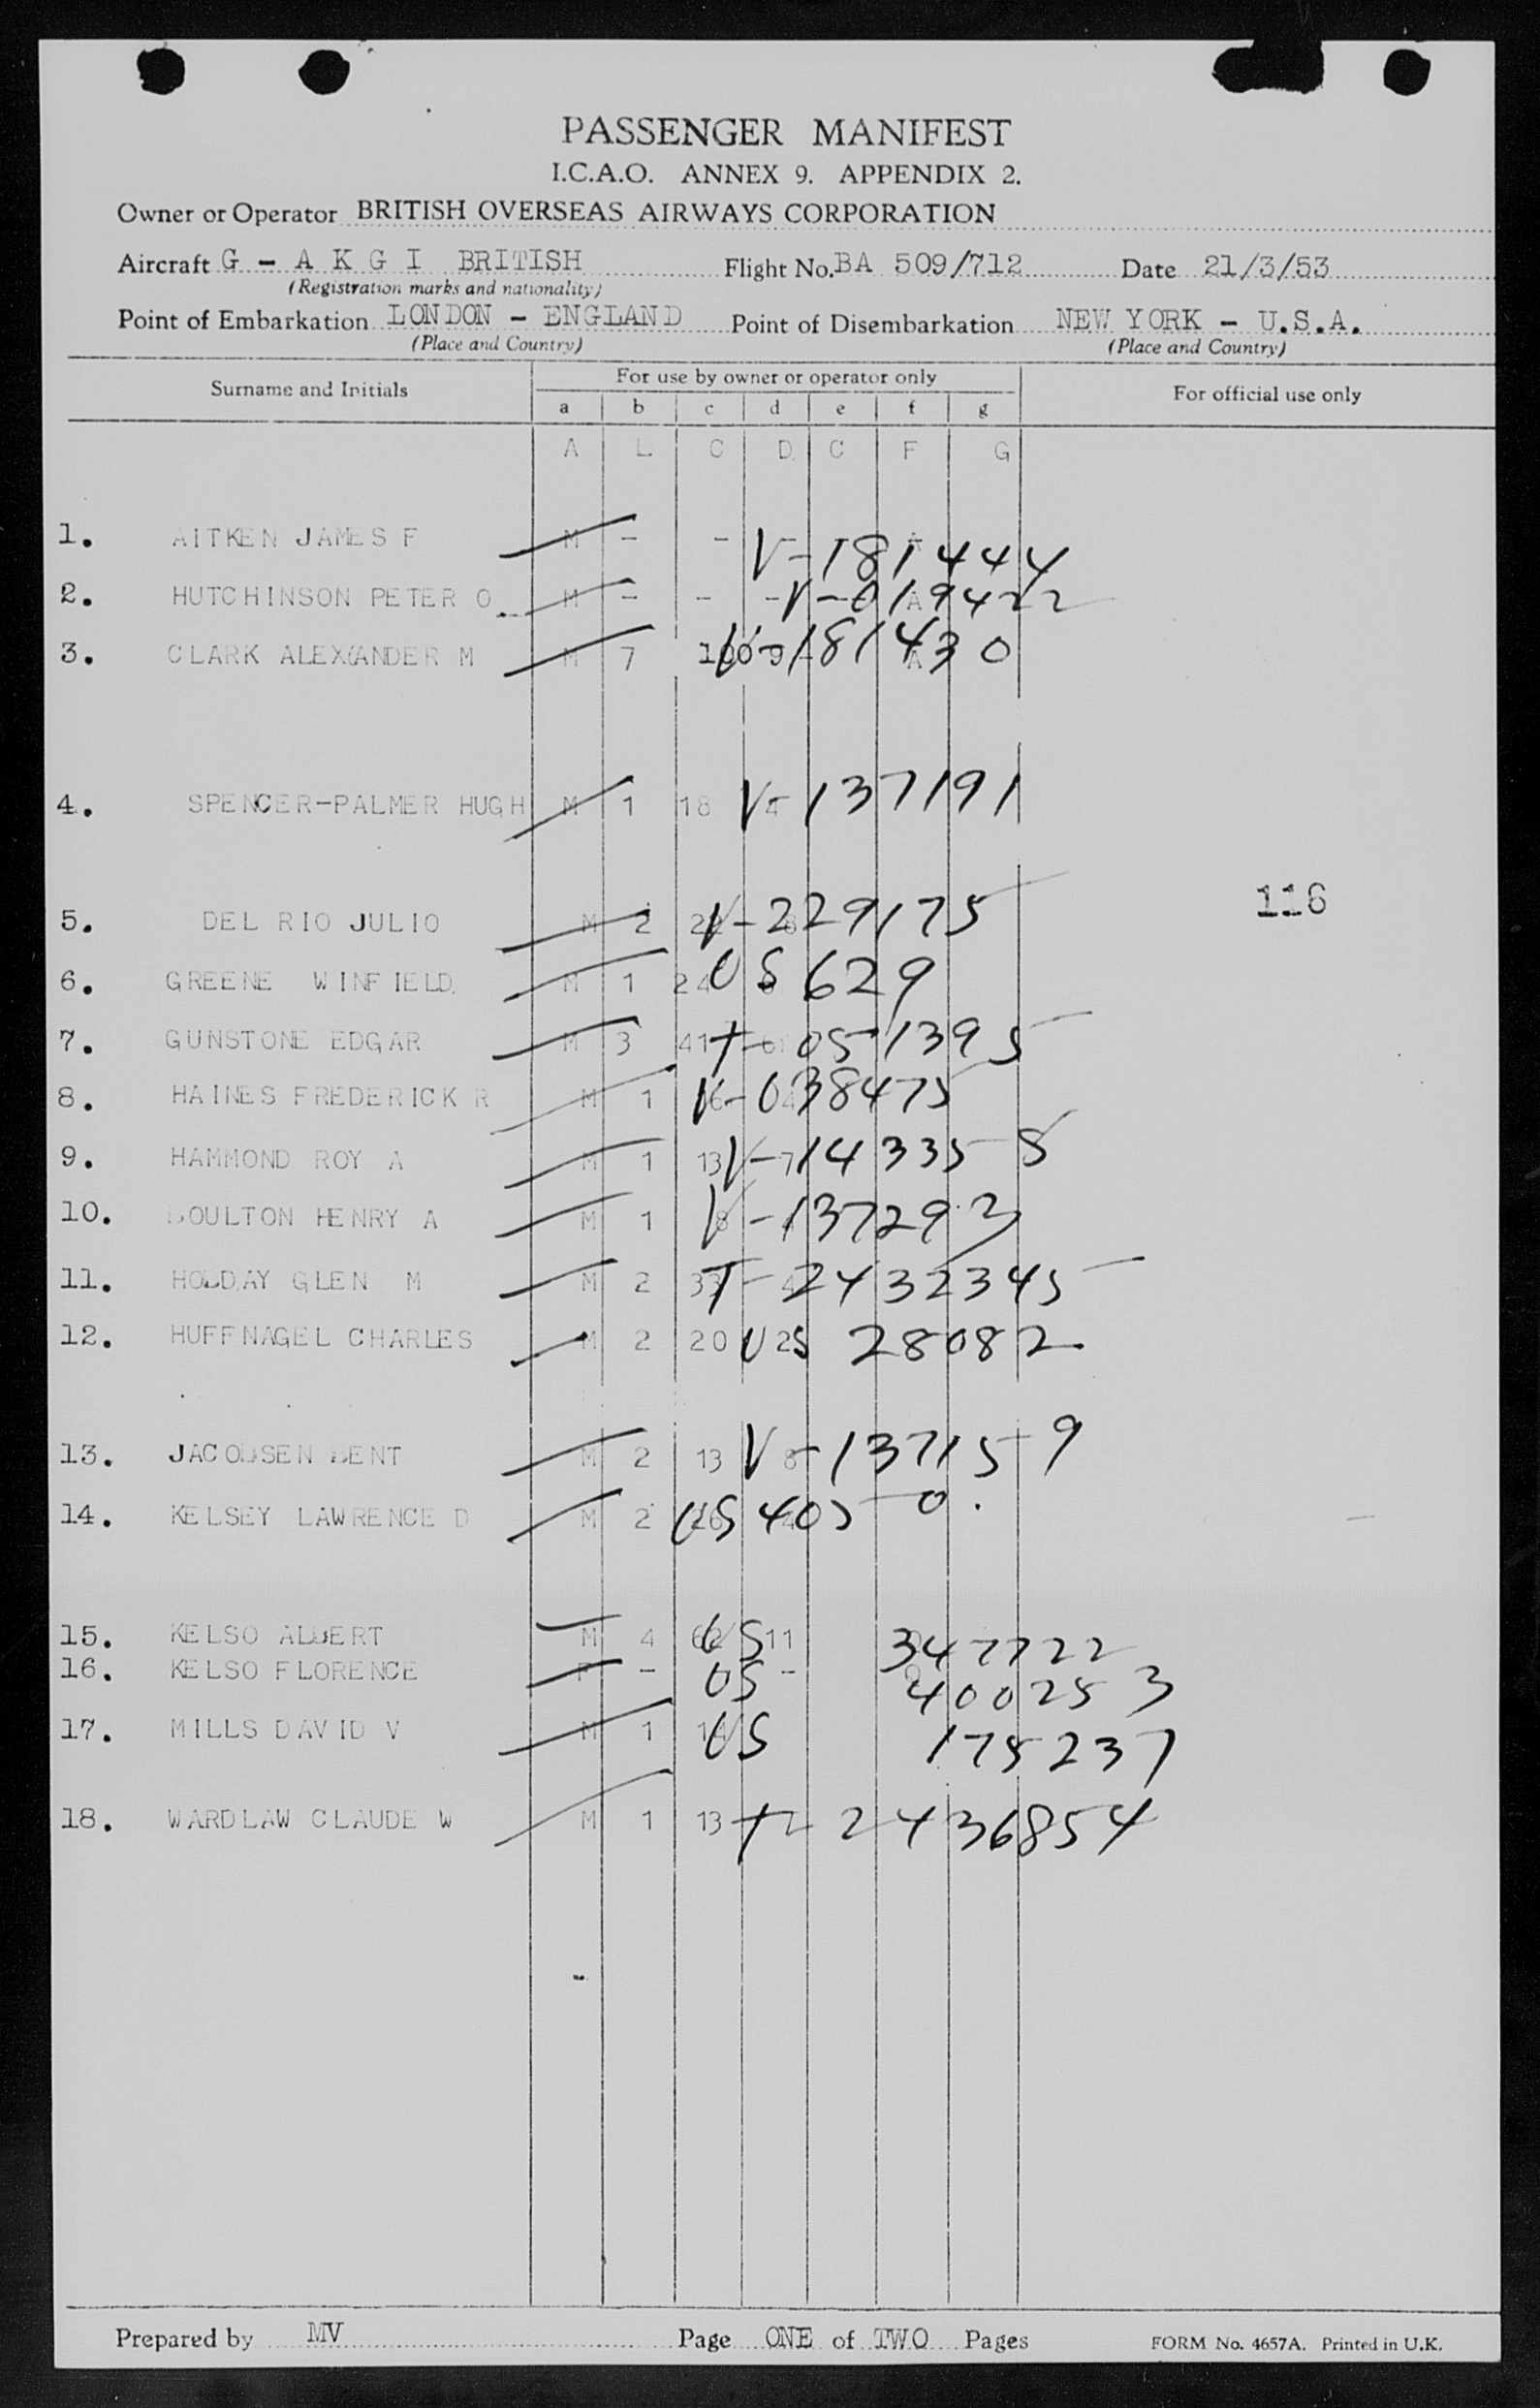 PASSENGER MANIFEST
I.C.A.O. ANNEX 9. APPENDIX 2.
Owner or Operator BRITISH OVERSEAS AIRWAYS CORPORATION
Aircraft G - A K G I BRITISH Flight No. BA 509/712 Date 21/3/53
(Registration marks and nationality)
Point of Embarkation LONDON - ENGLAND Point of Disembarkation NEW YORK - U.S.A.
(Place and Country) (Place and Country)
Surname and Initials For use by owner or operator only For official use only
a b c d e f g
A L C D C F G
1. AITKEN JAMES F M - - V-181444
2. HUTCHINSON PETER O. M - - - V-019422
3. CLARK ALEXANDER M M 7 100 V-181430
4. SPENCER-PALMER HUGH M 1 18 4 V-137191
116
5. DEL RIO JULIO M 2 V-229175
6. GREENE WINFIELD. M 1 24 US 629
7. GUNSTONE EDGAR M 3 41 T-051395
8. HAINES FREDERICK R M 1 V-038475
9. HAMMOND ROY A M 1 13 7 V-143358
10. HENRY A M 1 8 V-137293
11. GLEN M M 2 T-2432345
12. HUFFNAGEL CHARLES M 2 20 US 28082
13. JACOBSEN BENT M 2 13 8 V-137159
14. KELSEY LAWRENCE D M 2 US 4050
15. KELSO ALBERT M 4 US 11 347722
16. KELSO FLORENCE F - US - 400253
17. MILLS DAVID V M 1 US 175237
18. WARDLAW CLAUDE W M 1 13 T- 2436854
Prepared by MV Page ONE of TWO Pages FORM No. 4657A. Printed in U.K.